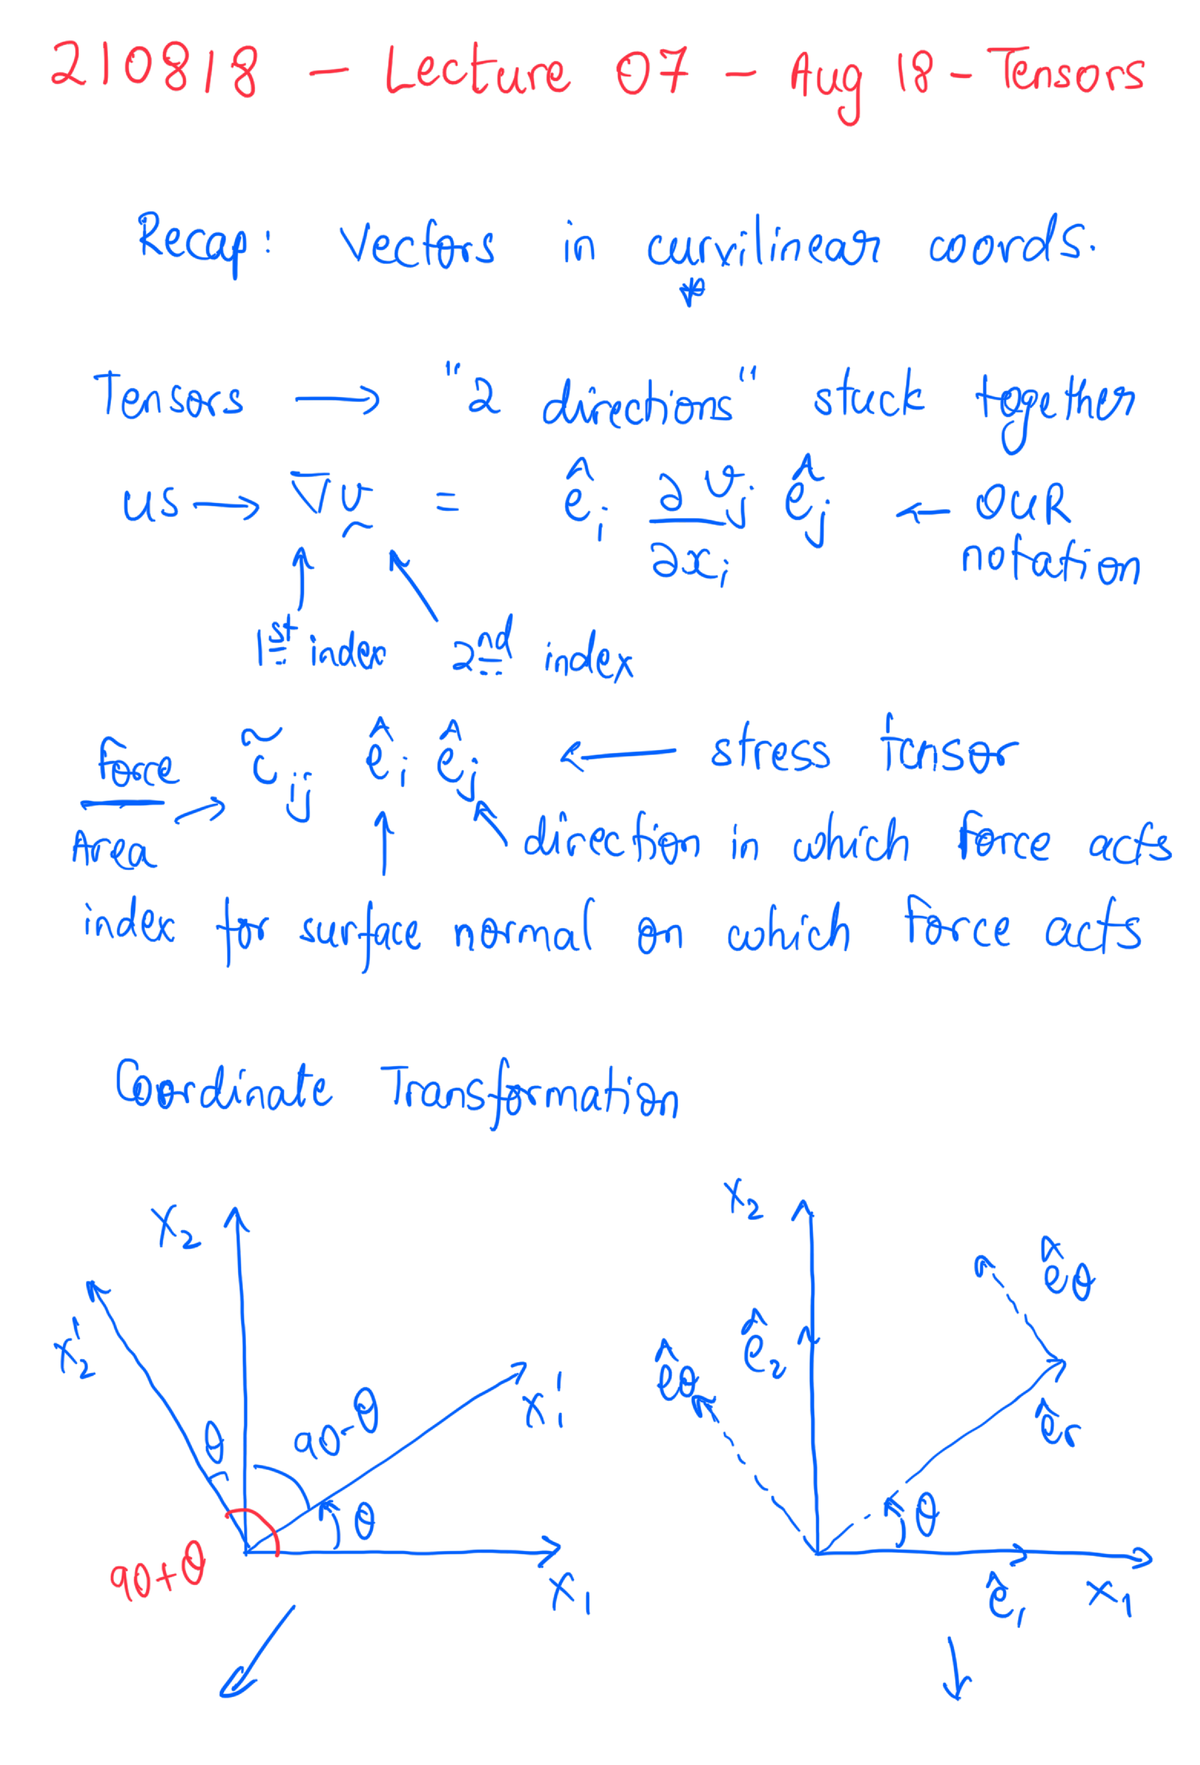 210818 - Lecture 07 - Aug 18 - Tensors
Recap: Vectors in curvilinear coords.
Tensors → "2 directions" stuck together
us → ∇v = ê_i ∂v_j/∂x_i ê_j ← OUR
notation
1st index 2nd index
Force/Area → τ_ij ê_i ê_j ← stress tensor
direction in which force acts
index for surface normal on which force acts
Coordinate Transformation
x₂
x₂'
θ
90-θ
x₁'
θ
90+θ
x₁
x₂
ê_θ
ê₂
ê_θ
ê_r
θ
ê₁
x₁